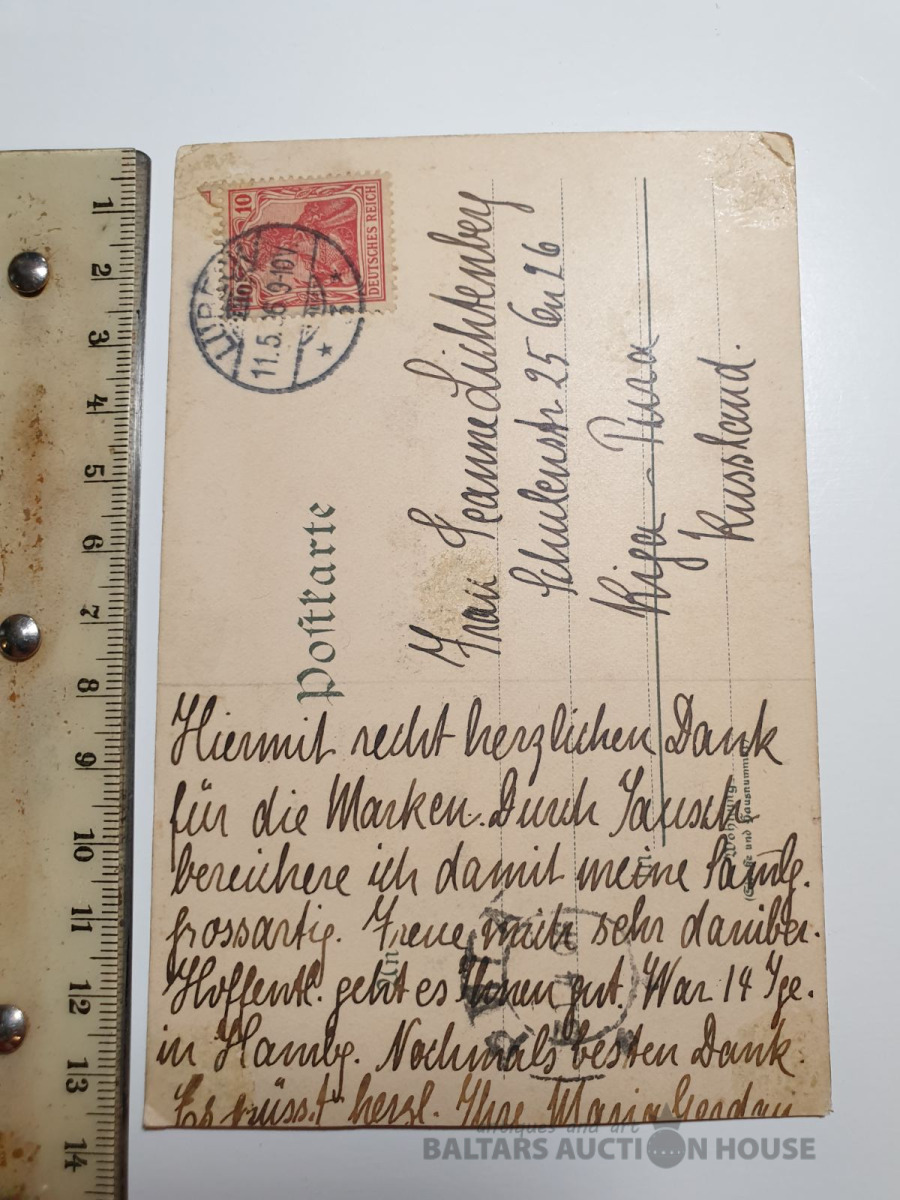 10
DEUTSCHES REICH
11.5.
9-10V.
3
Postkarte
Frau Jeanne Lichtenberg
Schulenstr 25
Riga
Russland.
Wohnung
(Straße und Hausnummer)
An
in
Hiermit recht herzlichen Dank
für die Marken. Durch Tausch
bereichere ich damit meine Samlg.
grossartig. Freue mich sehr darüber.
Hoffentl. geht es Ihnen gut. War 14 Tge.
in Hambg. Nochmals besten Dank.
Es grüsst herzl. Ihre Maria
1
2
3
4
5
6
7
8
9
10
11
12
13
14
antiques and art
BALTARS AUCTION HOUSE